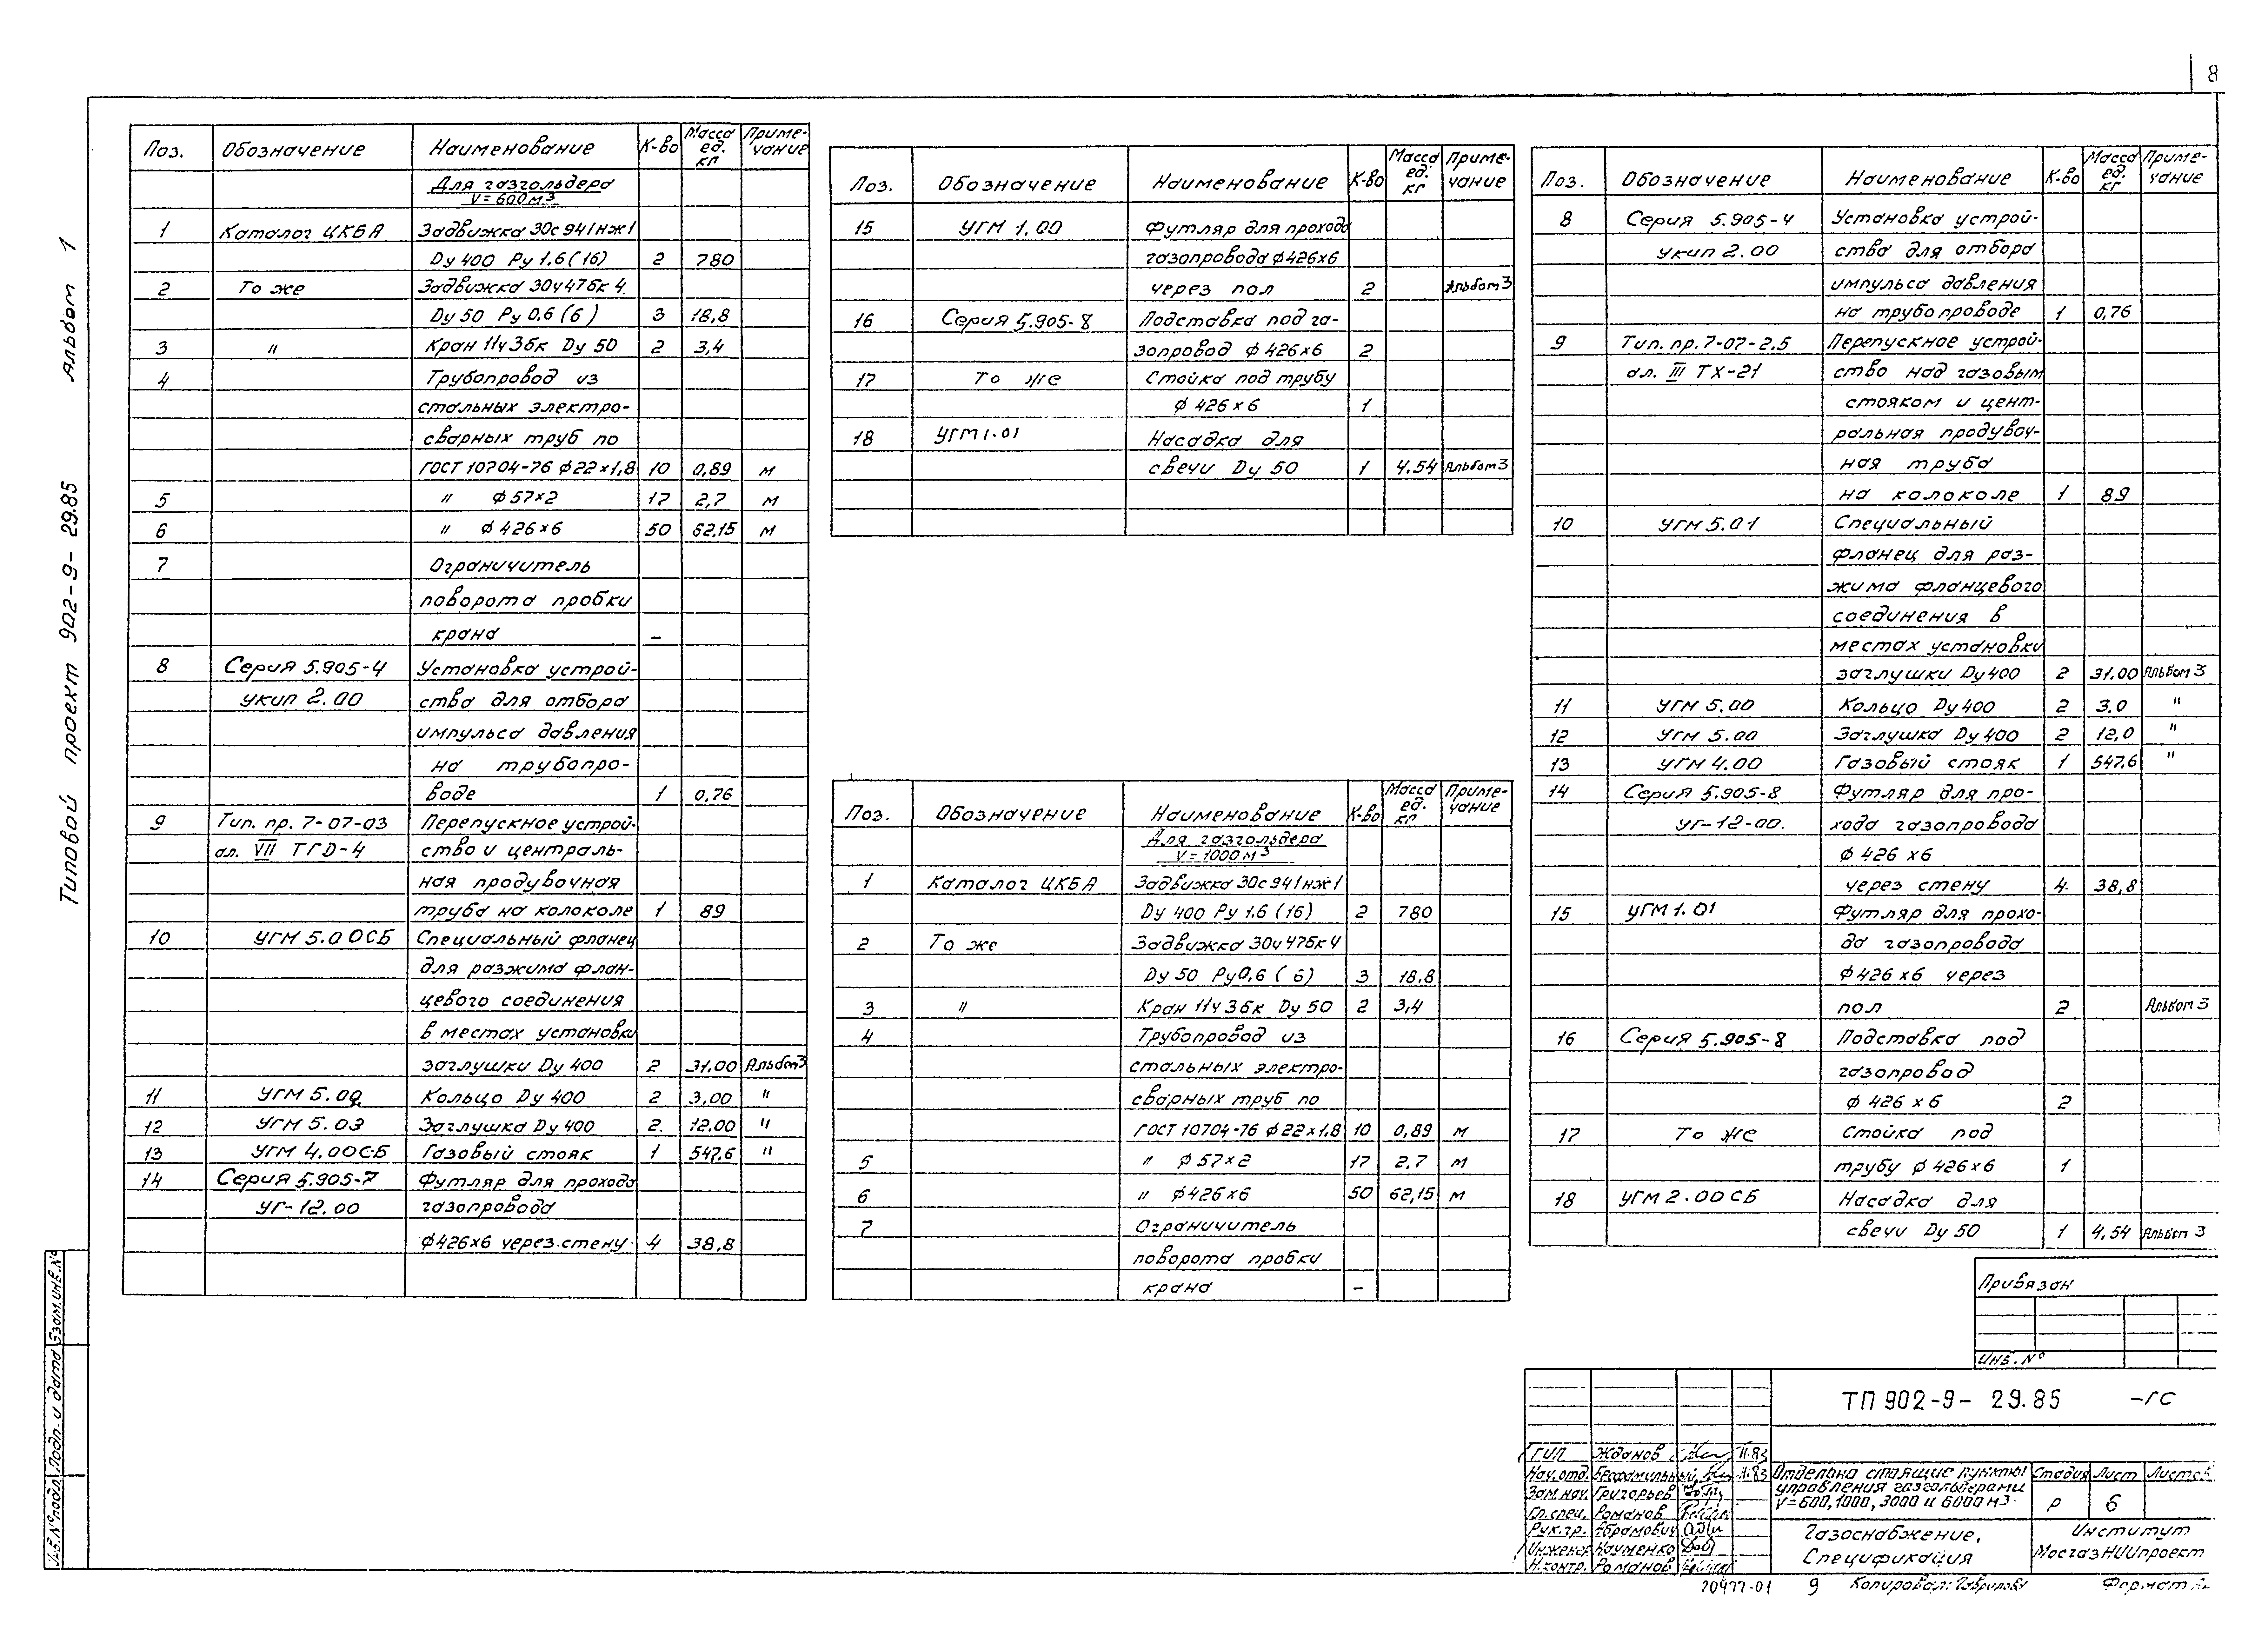 8
Типовой проект 902-9-29.85 Альбом 1
Поз. Обозначение Наименование К-во Масса ед. кг Примечание
Для газгольдера
V=600м3
1 Каталог ЦКБА Задвижка 30с941нж1
Dу 400 Ру 1,6(16) 2 780
2 То же Задвижка 30ч47бк4
Dу 50 Ру 0,6(6) 3 18,8
3 " Кран 11ч3бк Dу 50 2 3,4
4 Трубопровод из
стальных электро-
сварных труб по
ГОСТ 10704-76 ф22×1,8 10 0,89 м
5 " ф57×2 17 2,7 м
6 " ф426×6 50 62,15 м
7 Ограничитель
поворота пробки
крана –
8 Серия 5.905-4 Установка устрой-
укип 2.00 ства для отбора
импульса давления
на трубопро-
воде 1 0,76
9 Тип. пр. 7-07-03 Перепускное устрой-
ал. VII ТГD-4 ство и централь-
ная продувочная
труба на колоколе 1 89
10 УГМ 5.00СБ Специальный фланец
для разжима флан-
цевого соединения
в местах установки
заглушки Dу 400 2 31,00 Альбом3
11 УГМ 5.02 Кольцо Dу 400 2 3,00 "
12 УГМ 5.03 Заглушка Dу 400 2. 12.00 "
13 УГМ 4.00СБ Газовый стояк 1 547,6 "
14 Серия 5.905-7 Футляр для прохода
УГ-12.00 газопровода
ф426×6 через стену 4 38,8
Поз. Обозначение Наименование К-во Масса ед. кг Примечание
15 УГМ 1.00 Футляр для прохода
газопровода ф426×6
через пол 2 Альбом3
16 Серия 5.905-8 Подставка под га-
зопровод ф 426×6 2
17 То же Стойка под трубу
ф 426×6 1
18 УГМ1.01 Насадка для
свечи Dу 50 1 4.54 Альбом3
Поз. Обозначение Наименование К-во Масса ед. кг Примечание
Для газгольдера
V=1000м3
1 Каталог ЦКБА Задвижка 30с941нж1
Dу 400 Ру 1,6(16) 2 780
2 То же Задвижка 30ч47бк4
Dу 50 Ру0,6(6) 3 18,8
3 " Кран 11ч3бк Dу 50 2 3,4
4 Трубопровод из
стальных электро-
сварных труб по
ГОСТ 10704-76 ф22×1,8 10 0,89 м
5 " ф57×2 17 2,7 м
6 " ф426×6 50 62,15 м
7 Ограничитель
поворота пробки
крана –
Поз. Обозначение Наименование К-во Масса ед. кг Примечание
8 Серия 5.905-4 Установка устрой-
укип 2.00 ства для отбора
импульса давления
на трубопроводе 1 0,76
9 Тип. пр. 7-07-2.5 Перепускное устрой-
ал. III ТХ-21 ство над газовым
стояком и цент-
ральная продувоч-
ная труба
на колоколе 1 89
10 УГМ 5.01 Специальный
фланец для раз-
жима фланцевого
соединения в
местах установки
заглушки Dу 400 2 31,00 Альбом 3
11 УГМ 5.00 Кольцо Dу 400 2 3.0 "
12 УГМ 5.00 Заглушка Dу 400 2 12,0 "
13 УГМ 4.00 Газовый стояк 1 547.6 "
14 Серия 5.905-8 Футляр для про-
УГ-12-00. хода газопровода
ф 426×6
через стену 4. 38,8
15 УГМ 1.01 Футляр для прохо-
да газопровода
ф 426×6 через
пол 2 Альбом 3
16 Серия 5.905-8 Подставка под
газопровод
ф 426×6 2
17 То же Стойка под
трубу ф 426×6 1
18 УГМ 2.00СБ Насадка для
свечи Dу 50 1 4,54 Альбом 3
Привязан
Инв. №
ТП 902-9-29.85 -ГС
ГИП Жданов 11.83
Нач.отд. Бесфамильный 11.83
Зам.нач. Григорьев
Гл.спец. Романов
Рук.гр. Абрамович
Инженер Науменко
Н.контр. Романов
Отдельно стоящие пункты
управления газгольдерами
V=600, 1000, 3000 и 6000 м3
Стадия Лист Листов
Р 6
Газоснабжение.
Спецификация
Институт
МосгазНИИпроект
20477-01 9 Копировал: Формат А2
Инв.№подл. Подп. и дата Взам.инв.№